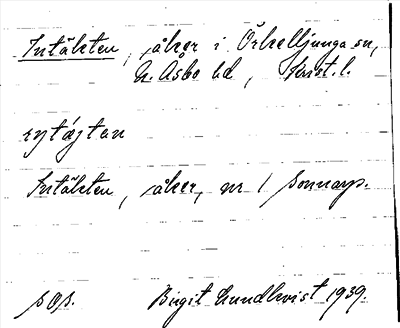 Intäkten, åker i Örkelljunga sn,
N. Åsbo hd, Krist. l.
Intäkten, åker, nr 1 Sonnarp.
Birgit Lundkvist 1939.